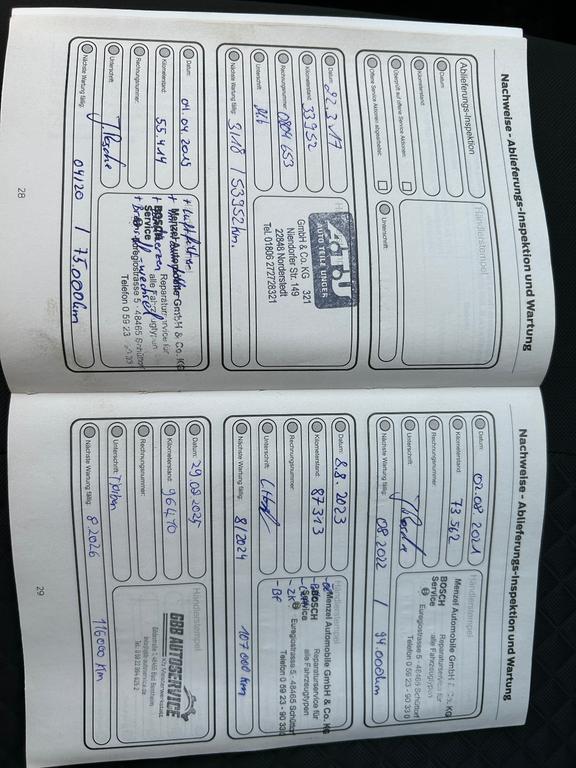 Nachweise - Ablieferungs-Inspektion und Wartung
Ablieferungs-Inspektion
Datum:
Kilometerstand:
Überprüft auf offene Service Aktionen:
Offene Service Aktionen abgearbeitet:
Händlerstempel
Unterschrift:
Datum: 22.3.17
Kilometerstand: 33952
Rechnungsnummer: 0804 653
Unterschrift:
Nächste Wartung fällig: 3/18 / 53952 km.
AUTO TEILE UNGER
GmbH & Co. KG 321
Niendorfer Str. 149
22848 Norderstedt
Tel. 01806 272728321
Datum: 04.04.2019
Kilometerstand: 55 414
Rechnungsnummer:
Unterschrift:
Nächste Wartung fällig: 04/20 / 75.000km
+ Luftfilter
Menzel Automobile GmbH & Co. KG
BOSCH
Service
Reparaturservice für
alle Fahrzeugtypen
Euregiostrasse 5 · 48465 Schüttorf
Telefon 0 59 23 -
28
Nachweise - Ablieferungs-Inspektion und Wartung
Datum: 02.08.2021
Kilometerstand: 73 562
Rechnungsnummer:
Unterschrift:
Nächste Wartung fällig: 08.2022 / 94.000km
Händlerstempel
Menzel Automobile GmbH & Co. KG
BOSCH
Service
Reparaturservice für
alle Fahrzeugtypen
Euregiostrasse 5 · 48465 Schüttorf
Telefon 0 59 23 - 90 33 0
Datum: 8.8.2023
Kilometerstand: 87 313
Rechnungsnummer:
Unterschrift:
Nächste Wartung fällig: 8/2024 107 000 km
Händlerstempel
Menzel Automobile GmbH & Co. KG
BOSCH
Service
Reparaturservice für
alle Fahrzeugtypen
Euregiostrasse 5 · 48465 Schüttorf
Telefon 0 59 23 - 90
- ZK
- BF
Datum: 29.08.2025
Kilometerstand: 96410
Rechnungsnummer:
Unterschrift:
Nächste Wartung fällig: 8.2026 116000 km
Händlerstempel
GBB AUTOSERVICE
Kfz-Meisterwerkstatt
29